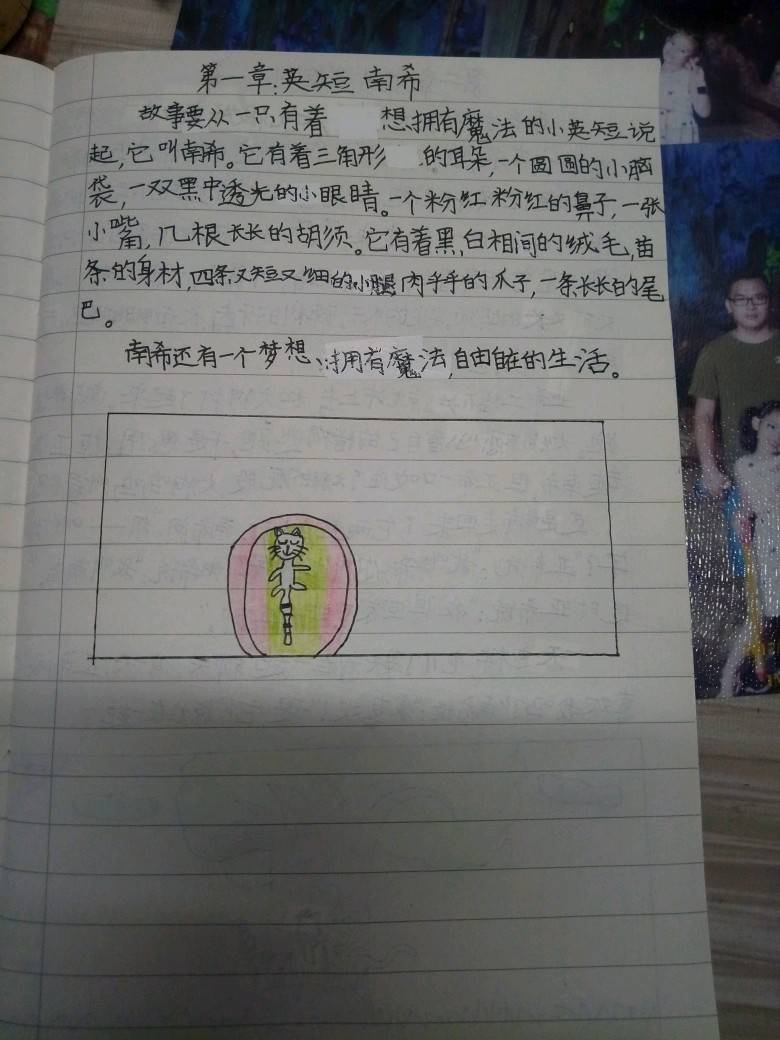 第一章:英短南希
故事要从一只有着 想拥有魔法的小英短说
起,它叫南希。它有着三角形 的耳朵,一个圆圆的小脑
袋,一双黑中透光的小眼睛。一个粉红粉红的鼻子,一张
小嘴,几根长长的胡须。它有着黑,白相间的绒毛,苗
条的身材,四条又短又细的小腿肉乎乎的爪子,一条长长的尾
巴。
南希还有一个梦想:拥有魔法,自由自在的生活。